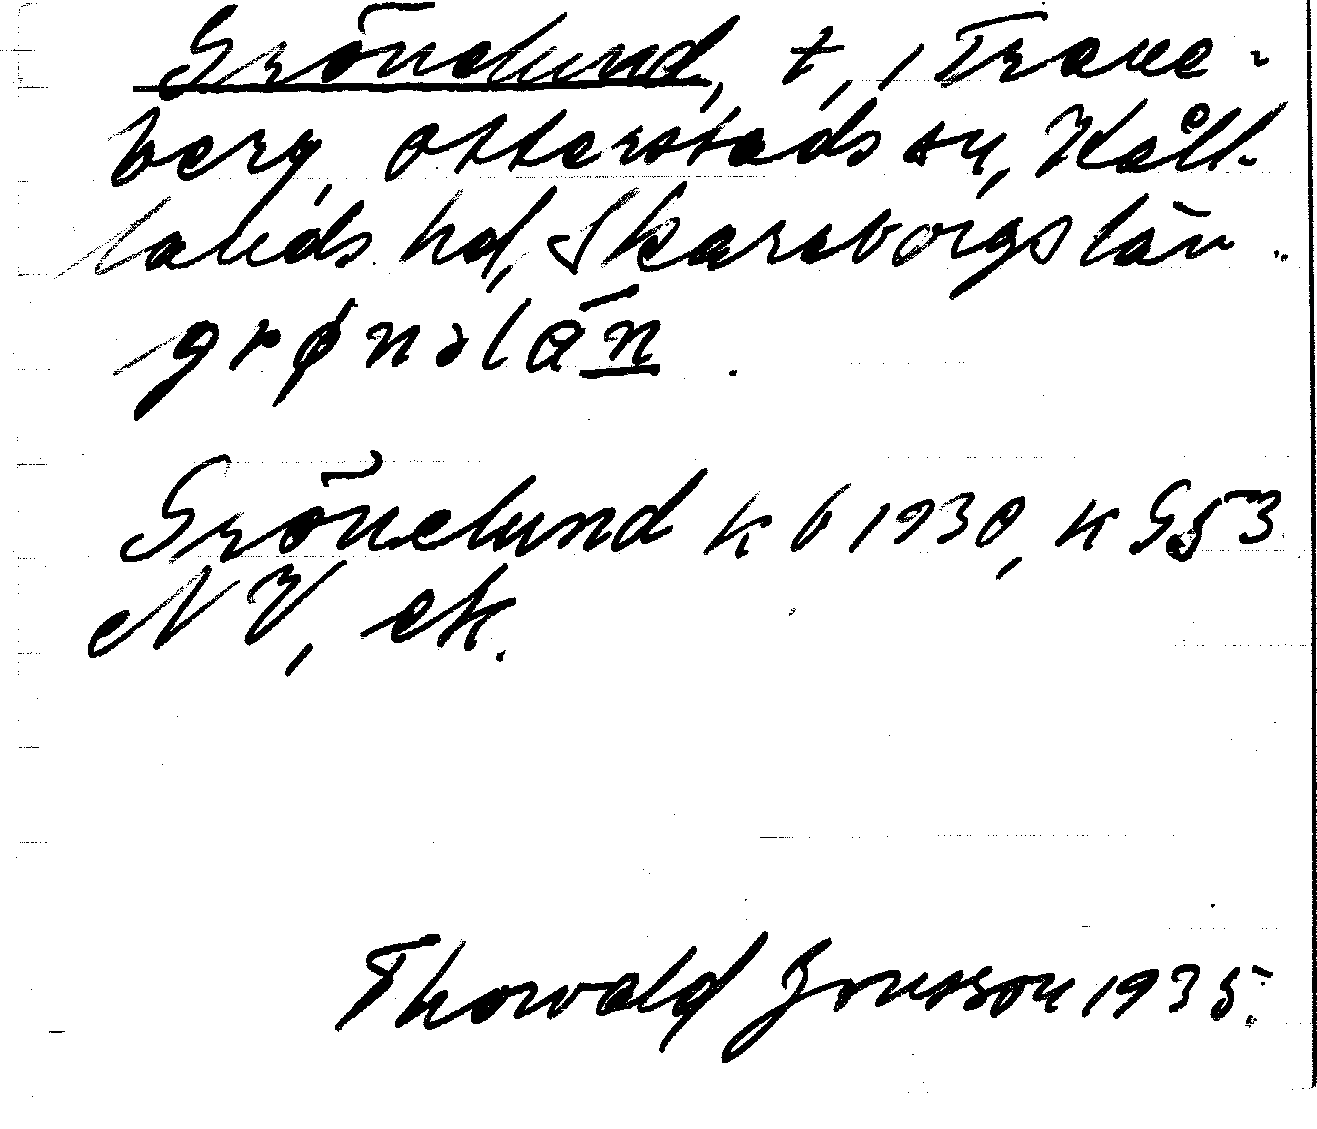 Grönelund, t, i Trane-
berg, Otterstads sn, Kål-
lands hd, Skaraborgs län.
grønəlan̲
Grönelund kb 1930, k G53
NV, ek.
Thorvald Jonsson 1935.